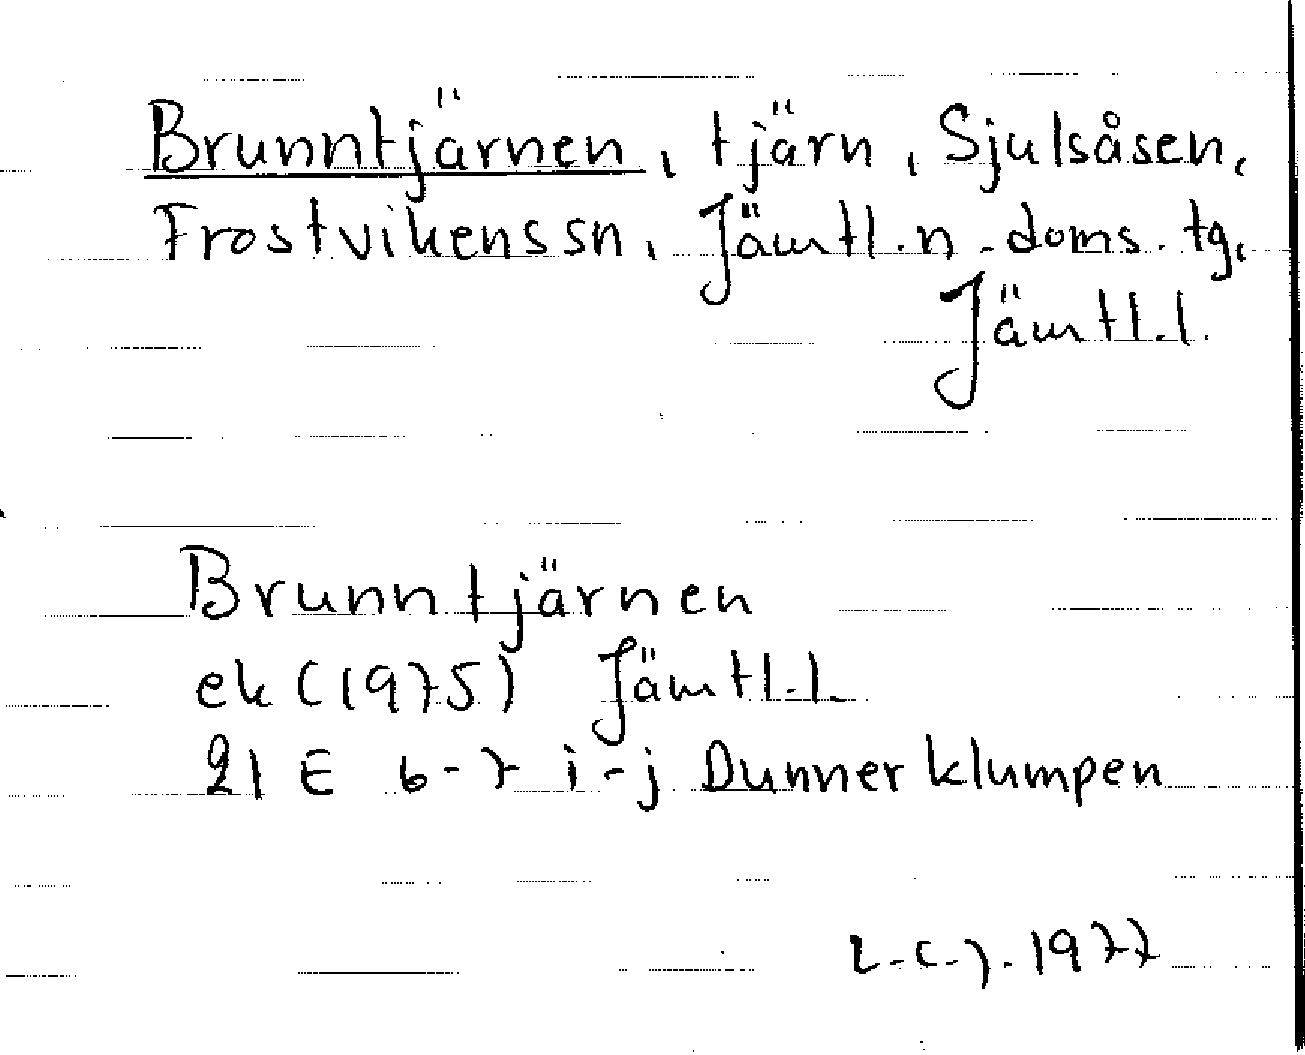 Brunntjärnen, tjärn, Sjulsåsen,
Frostvikens sn, Jämtl.n.doms.tg,
Jämtl.l.
Brunntjärnen
ek (1975) Jämtl.l.
21 E 6-7 i-j Dunnerklumpen
L.C.J. 1977